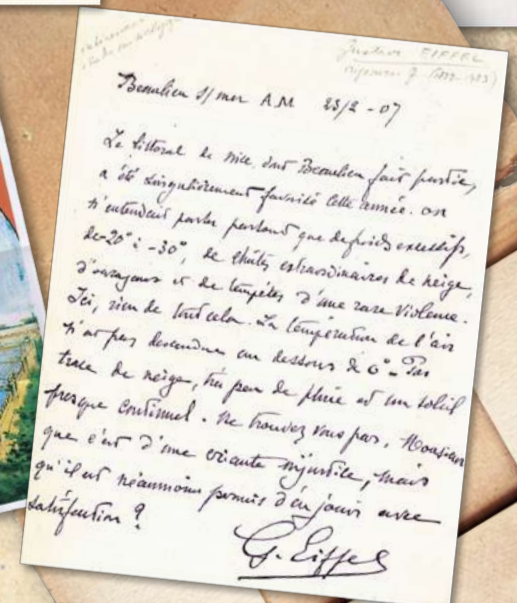 Gustave EIFFEL
Beaulieu s/ mer A.M 23/2 - 07
Le littoral de Nice dont Beaulieu fait partie,
a été singulièrement favorisé cette année. on
n'entendait parler partout que de froids excessifs,
de -20° à -30°, de chutes extraordinaires de neige,
d'ouragans et de tempêtes d'une rare violence.
Ici, rien de tout cela. La température de l'air
n'est pas descendue au dessous de 6° - Pas
trace de neige, très peu de pluie et un soleil
presque continuel. Ne trouvez vous pas, Monsieur
que c'est d'une criante injustice, mais
qu'il est néanmoins permis d'en jouir avec
satisfaction ?
G. Eiffel